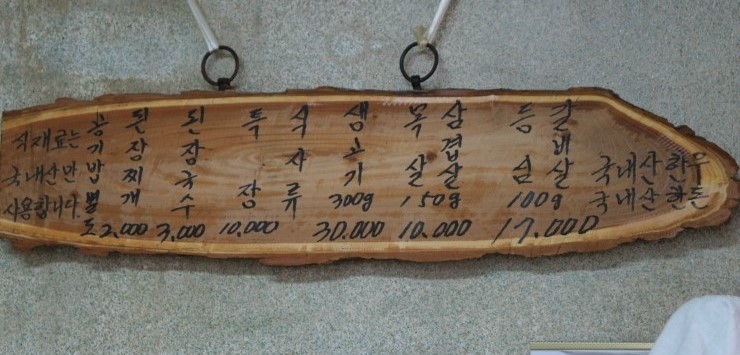 국내산 한우
국내산 한돈
갈비살
등심
100g
17.000
삼겹살
목살
150g
10.000
생고기
300g
30.000
식사류
특장
10,000
된장국수
3,000
된장찌개
2,000
공기밥별도
식재료는
국내산만
사용합니다.